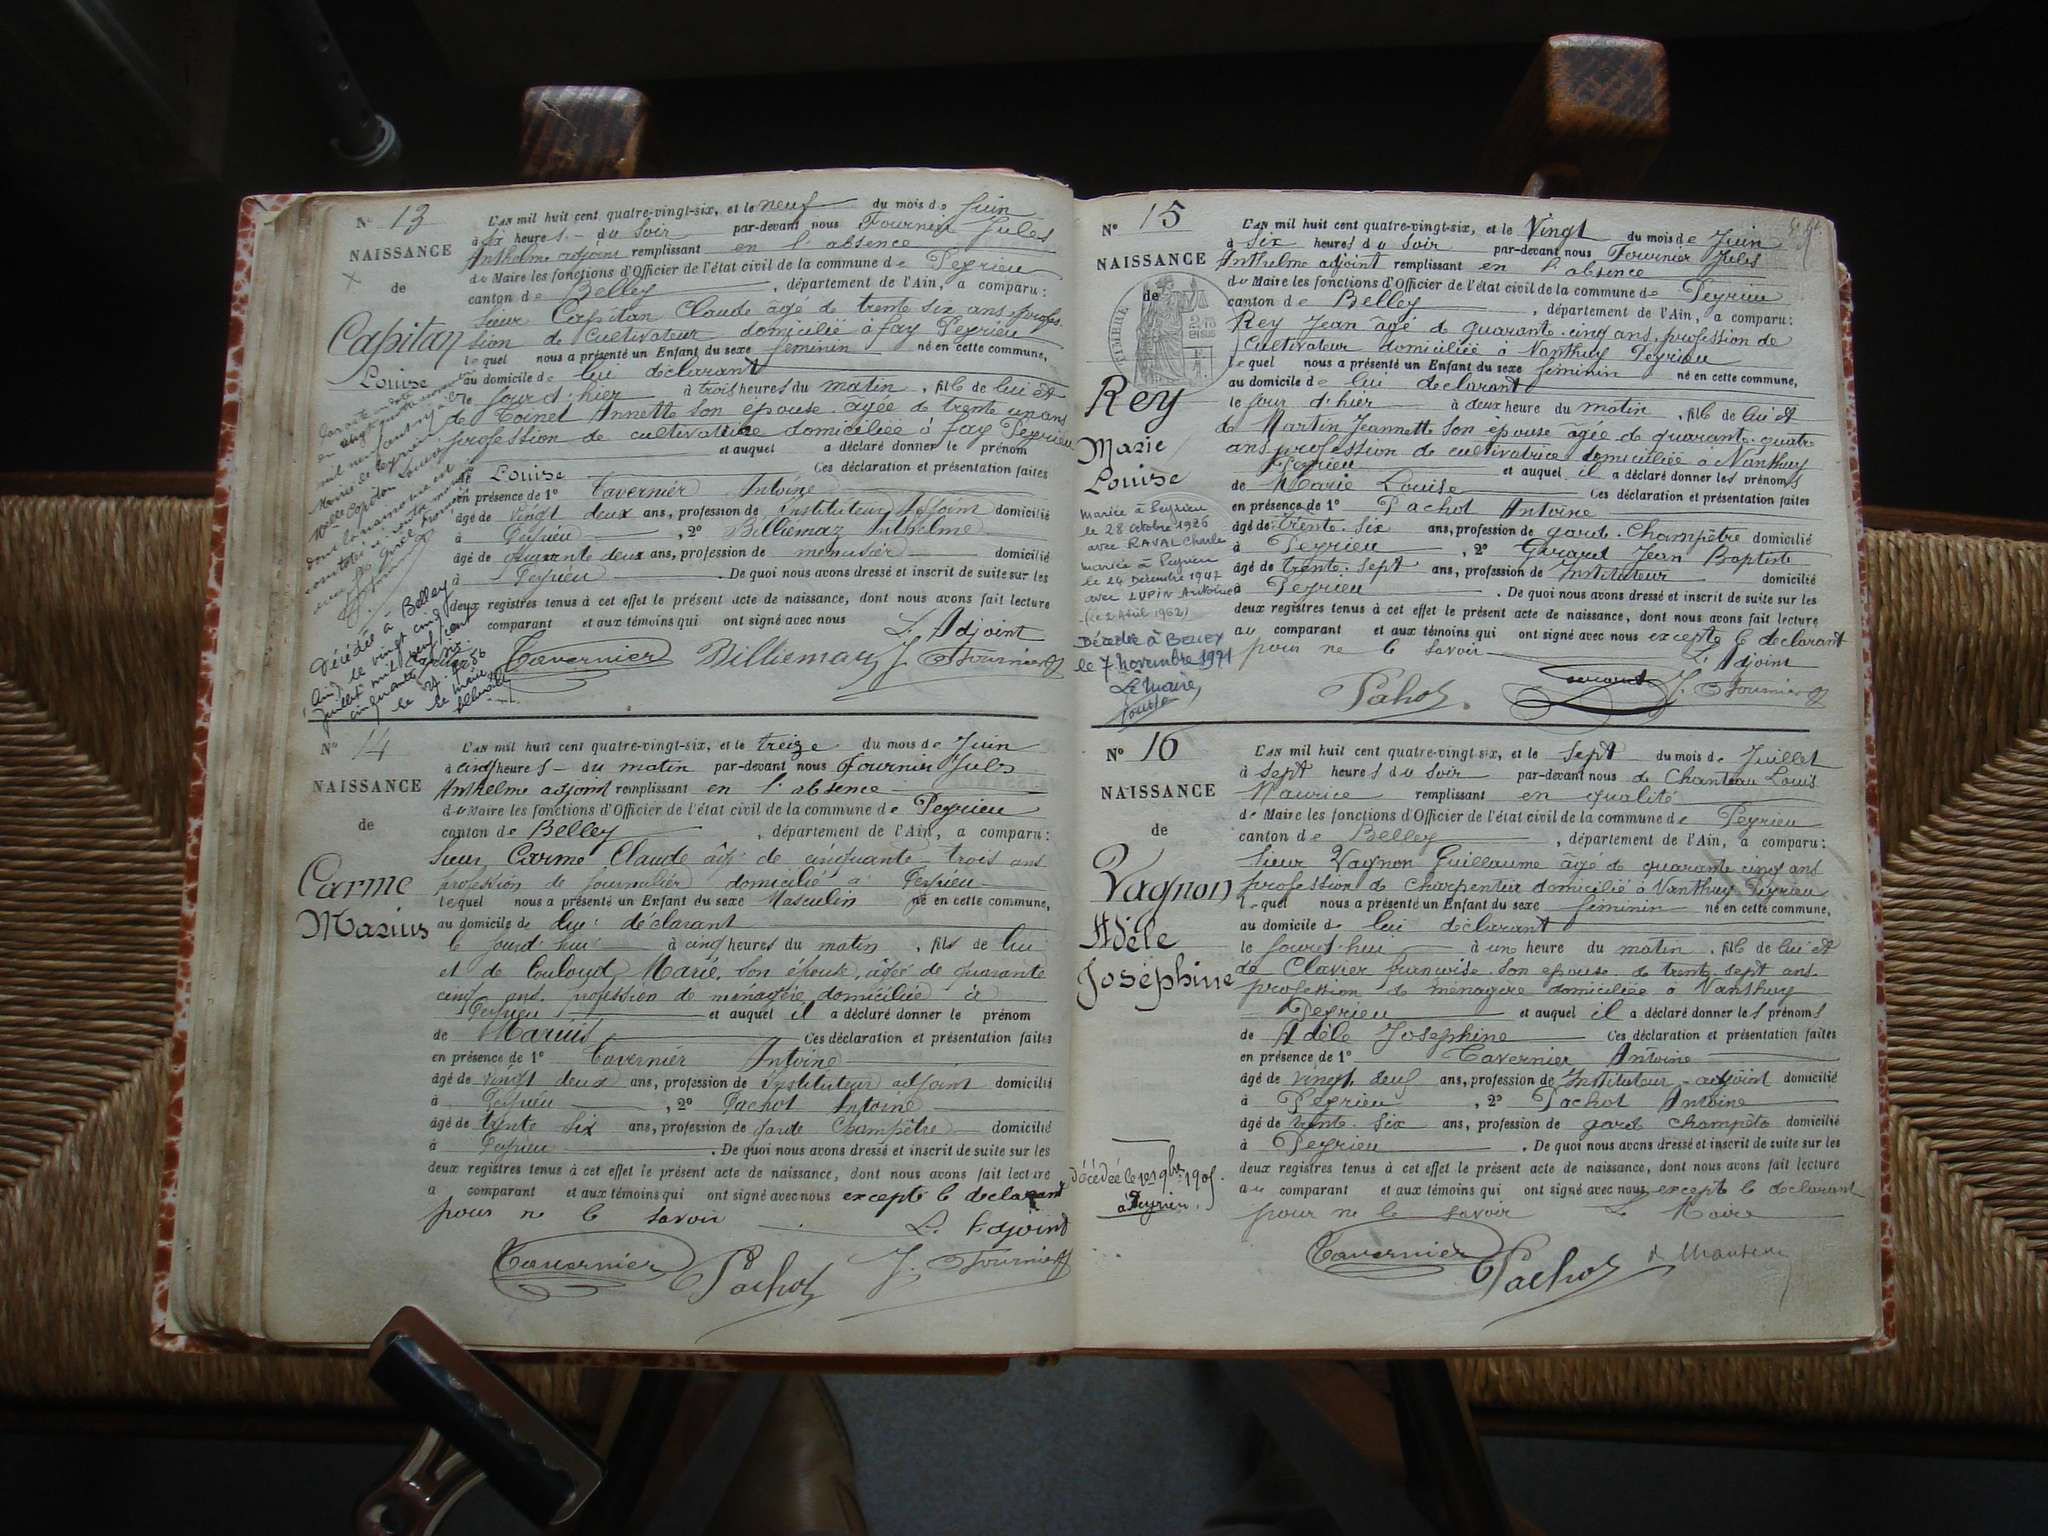 N° 13
NAISSANCE
de
Capitan
Louise
L'AN mil huit cent quatre-vingt-six, et le neuf du mois de Juin
à six heures du soir par-devant nous Fournier Jules
Anthelme adjoint remplissant en l'absence
du Maire les fonctions d'Officier de l'état civil de la commune de Peyrieu
canton de Belley, département de l'Ain, a comparu:
Sieur Capitan Claude âgé de trente six ans, profes
sion de cultivateur domicilié à fay Peyrieu
lequel nous a présenté un Enfant du sexe féminin né en cette commune,
au domicile de lui déclarant
le jour d'hier à trois heures du matin, fille de lui et
de Toinet Annette son épouse âgée de trente un ans
profession de cultivatrice domiciliée à fay Peyrieu
et auquel a déclaré donner le prénom
de Louise Ces déclaration et présentation faites
en présence de 1° Tavernier Antoine
âgé de vingt deux ans, profession de instituteur adjoint domicilié
à Peyrieu, 2° Billiemaz Anthelme
âgé de quarante deux ans, profession de menuisier domicilié
à Peyrieu. De quoi nous avons dressé et inscrit de suite sur les
deux registres tenus à cet effet le présent acte de naissance, dont nous avons fait lecture
comparant et aux témoins qui ont signé avec nous
L'Adjoint
Tavernier Billiemaz J. Fournier
Décédée à Belley
(Ain) le vingt cinq
juillet mil neuf cent
cinquante six
N° 14
NAISSANCE
de
Carme
Marius
L'AN mil huit cent quatre-vingt-six, et le treize du mois de Juin
à cinq heures du matin par-devant nous Fournier Jules
Anthelme adjoint remplissant en l'absence
du Maire les fonctions d'Officier de l'état civil de la commune de Peyrieu
canton de Belley, département de l'Ain, a comparu:
Sieur Carme Claude âgé de cinquante trois ans
profession de journalier domicilié à Peyrieu
lequel nous a présenté un Enfant du sexe Masculin né en cette commune,
au domicile de lui déclarant
le jourd'hui à cinq heures du matin, fils de lui
et de Couloud Marie, son épouse, âgée de quarante
cinq ans, profession de ménagère domiciliée à
Peyrieu et auquel il a déclaré donner le prénom
de Marius Ces déclaration et présentation faites
en présence de 1° Tavernier Antoine
âgé de vingt deux ans, profession de instituteur adjoint domicilié
à Peyrieu, 2° Pachot Antoine
âgé de trente six ans, profession de garde Champêtre domicilié
à Peyrieu. De quoi nous avons dressé et inscrit de suite sur les
deux registres tenus à cet effet le présent acte de naissance, dont nous avons fait lecture
a comparant et aux témoins qui ont signé avec nous excepté le déclarant
pour ne le savoir
L'Adjoint
Tavernier Pachot J. Fournier
N° 15
NAISSANCE
de
TIMBRE
Rey
Marie
Louise
mariée à Peyrieu
le 28 octobre 1926
avec RAVAL Charles
mariée à Peyrieu
le 24 Décembre 1947
avec LUPIN Antoine
(le 2 Avril 1962)
Décédée à BELLEY
le 7 Novembre 1971
Le Maire,
L'AN mil huit cent quatre-vingt-six, et le Vingt du mois de Juin
à six heures du soir par-devant nous Fournier Jules
Anthelme adjoint remplissant en l'absence
du Maire les fonctions d'Officier de l'état civil de la commune de Peyrieu
canton de Belley, département de l'Ain, a comparu:
Rey Jean âgé de quarante-cinq ans, profession de
cultivateur domiciliée à Nanthuy Peyrieu
lequel nous a présenté un Enfant du sexe féminin né en cette commune,
au domicile de lui déclarant
le jour d'hier à deux heure du matin, fille de lui et
de Martin Jeannette son épouse âgée de quarante-quatre
ans profession de cultivatrice domiciliée à Nanthuy
Peyrieu et auquel il a déclaré donner les prénoms
de Marie Louise Ces déclaration et présentation faites
en présence de 1° Pachot Antoine
âgé de trente-six ans, profession de garde-Champêtre domicilié
à Peyrieu, 2° Jean Baptiste
âgé de trente-sept ans, profession de Instituteur domicilié
à Peyrieu. De quoi nous avons dressé et inscrit de suite sur les
deux registres tenus à cet effet le présent acte de naissance, dont nous avons fait lecture
au comparant et aux témoins qui ont signé avec nous excepté le déclarant
pour ne le savoir
L'Adjoint
Pachot J. Fournier
N° 16
NAISSANCE
de
Vagnon
Adèle
Joséphine
L'AN mil huit cent quatre-vingt-six, et le sept du mois de Juillet
à sept heures du soir par-devant nous de Chanteau Louis
Maurice remplissant en qualité
de Maire les fonctions d'Officier de l'état civil de la commune de Peyrieu
canton de Belley, département de l'Ain, a comparu:
Sieur Vagnon Guillaume âgé de quarante cinq ans
profession de charpentier domicilié à Nanthuy Peyrieu
lequel nous a présenté un Enfant du sexe féminin né en cette commune,
au domicile de lui déclarant
le jourd'hui à une heure du matin, fille de lui et
de Clavier françoise son épouse de trente-sept ans
profession de ménagère domiciliée à Nanthuy
Peyrieu et auquel il a déclaré donner les prénoms
de Adèle Josephine Ces déclaration et présentation faites
en présence de 1° Tavernier Antoine
âgé de vingt deux ans, profession de Instituteur-adjoint domicilié
à Peyrieu, 2° Pachot Antoine
âgé de trente-six ans, profession de garde champête domicilié
à Peyrieu. De quoi nous avons dressé et inscrit de suite sur les
deux registres tenus à cet effet le présent acte de naissance, dont nous avons fait lecture
au comparant et aux témoins qui ont signé avec nous excepté le déclarant
pour ne le savoir Le Maire
Tavernier Pachot
décédée le 9bre 1905
à Peyrieu.